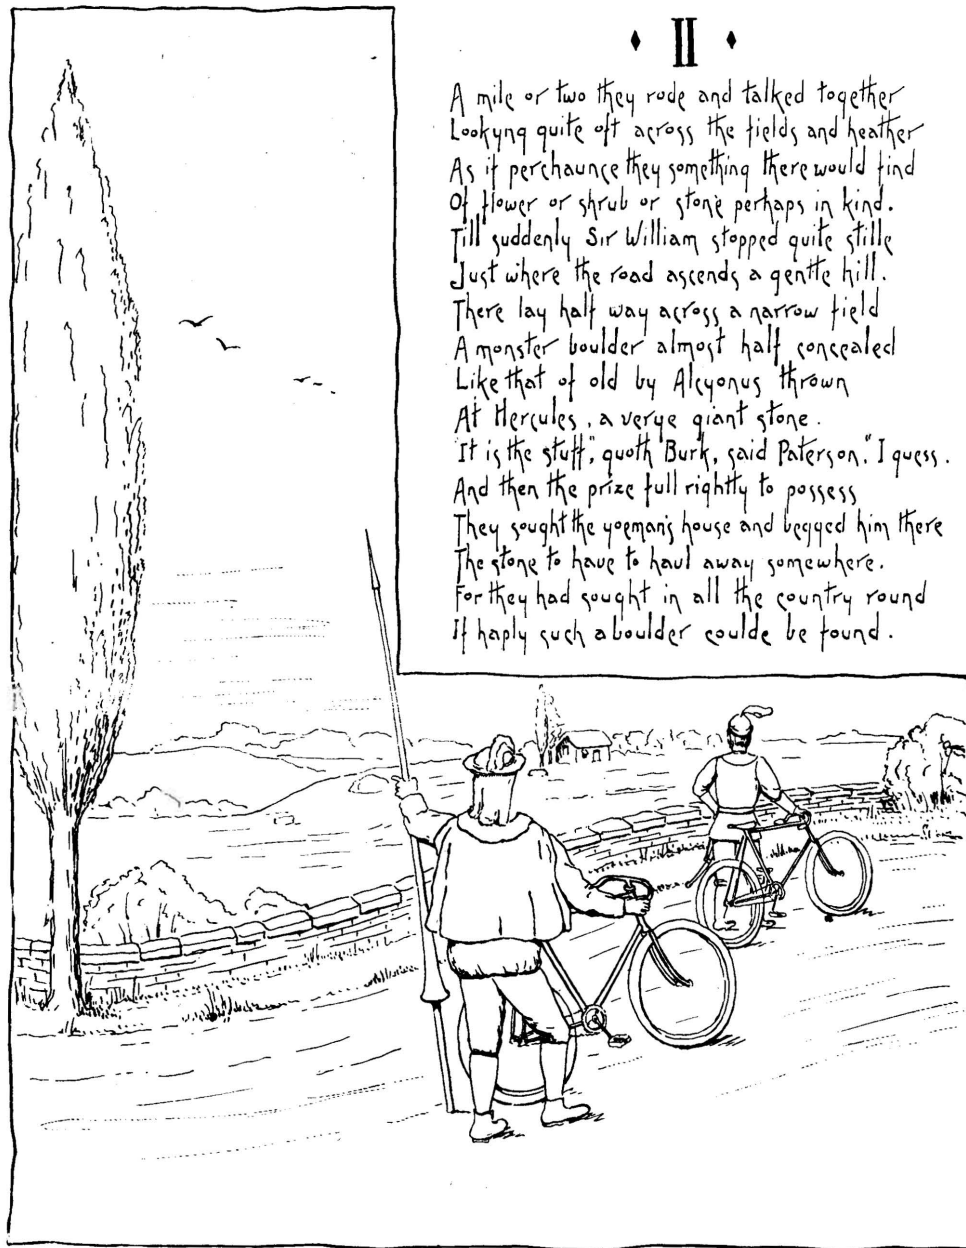 II
A mile or two they rode and talked together
Lookyng quite oft across the fields and heather
As if perchaunce they something there would find
Of flower or shrub or stone perhaps in kind.
Till suddenly Sir William stopped quite stille
Just where the road ascends a gentle hill.
There lay half way across a narrow field
A monster boulder almost half concealed
Like that of old by Alcyonus thrown
At Hercules, a verye giant stone.
"It is the stuff", quoth Burk, said Paterson, "I guess.
And then the prize full rightly to possess
They sought the yoeman's house and begged him there
The stone to have to haul away somewhere.
For they had sought in all the country round
If haply such a boulder coulde be found.